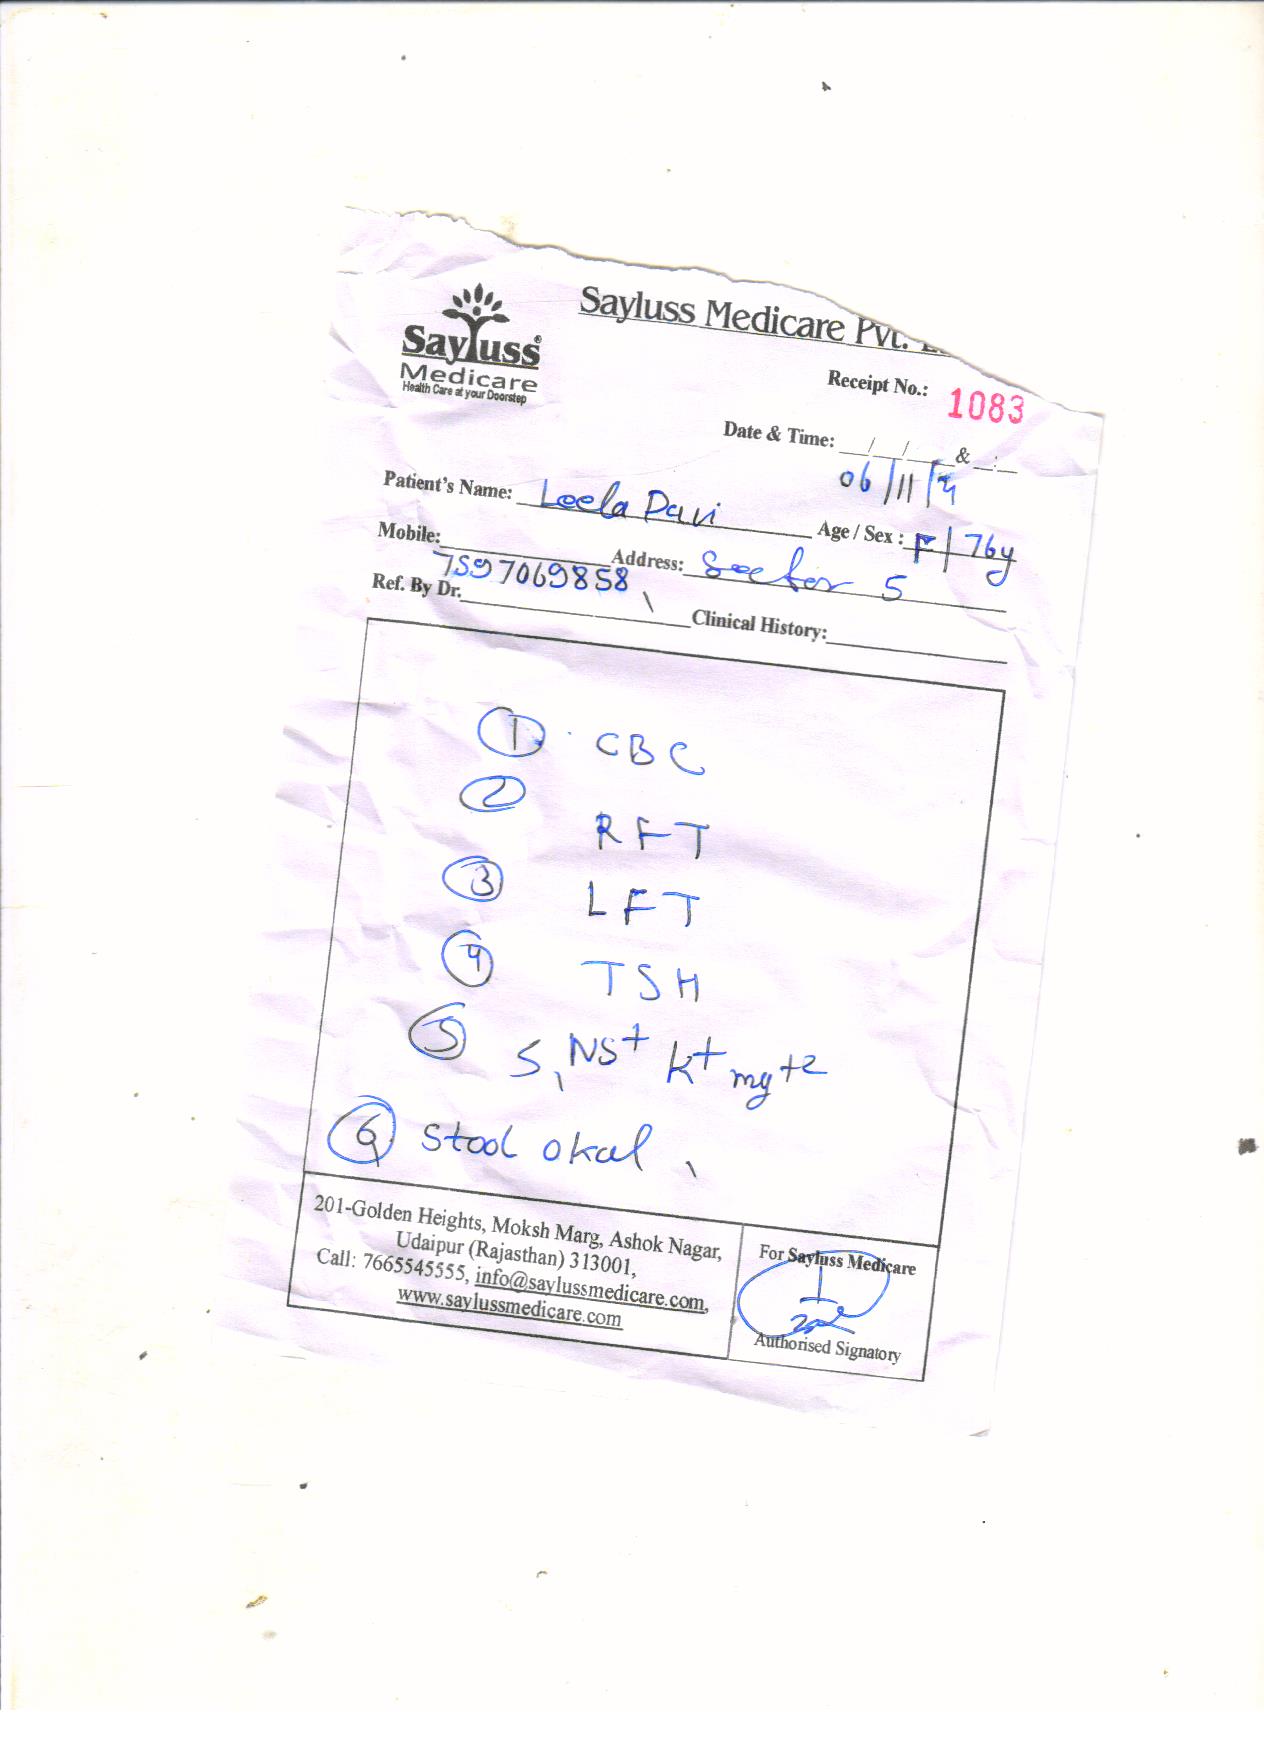 Sayluss Medicare Pvt.
Sayluss®
Medicare
Health Care at your Doorstep
Receipt No.: 1083
Date & Time: __/__/____ & __:__
06/11/
Patient's Name: Leela Davi
Age / Sex : F/76y
Mobile: 7597069858
Address: Sector 5
Ref. By Dr.
Clinical History:
1 CBC
2
RFT
3 LFT
4 TSH
5 S, NS+ K+ mg+2
6 Stool okal
201-Golden Heights, Moksh Marg, Ashok Nagar,
Udaipur (Rajasthan) 313001,
Call: 7665545555, info@saylussmedicare.com,
www.saylussmedicare.com
For Sayluss Medicare
Authorised Signatory